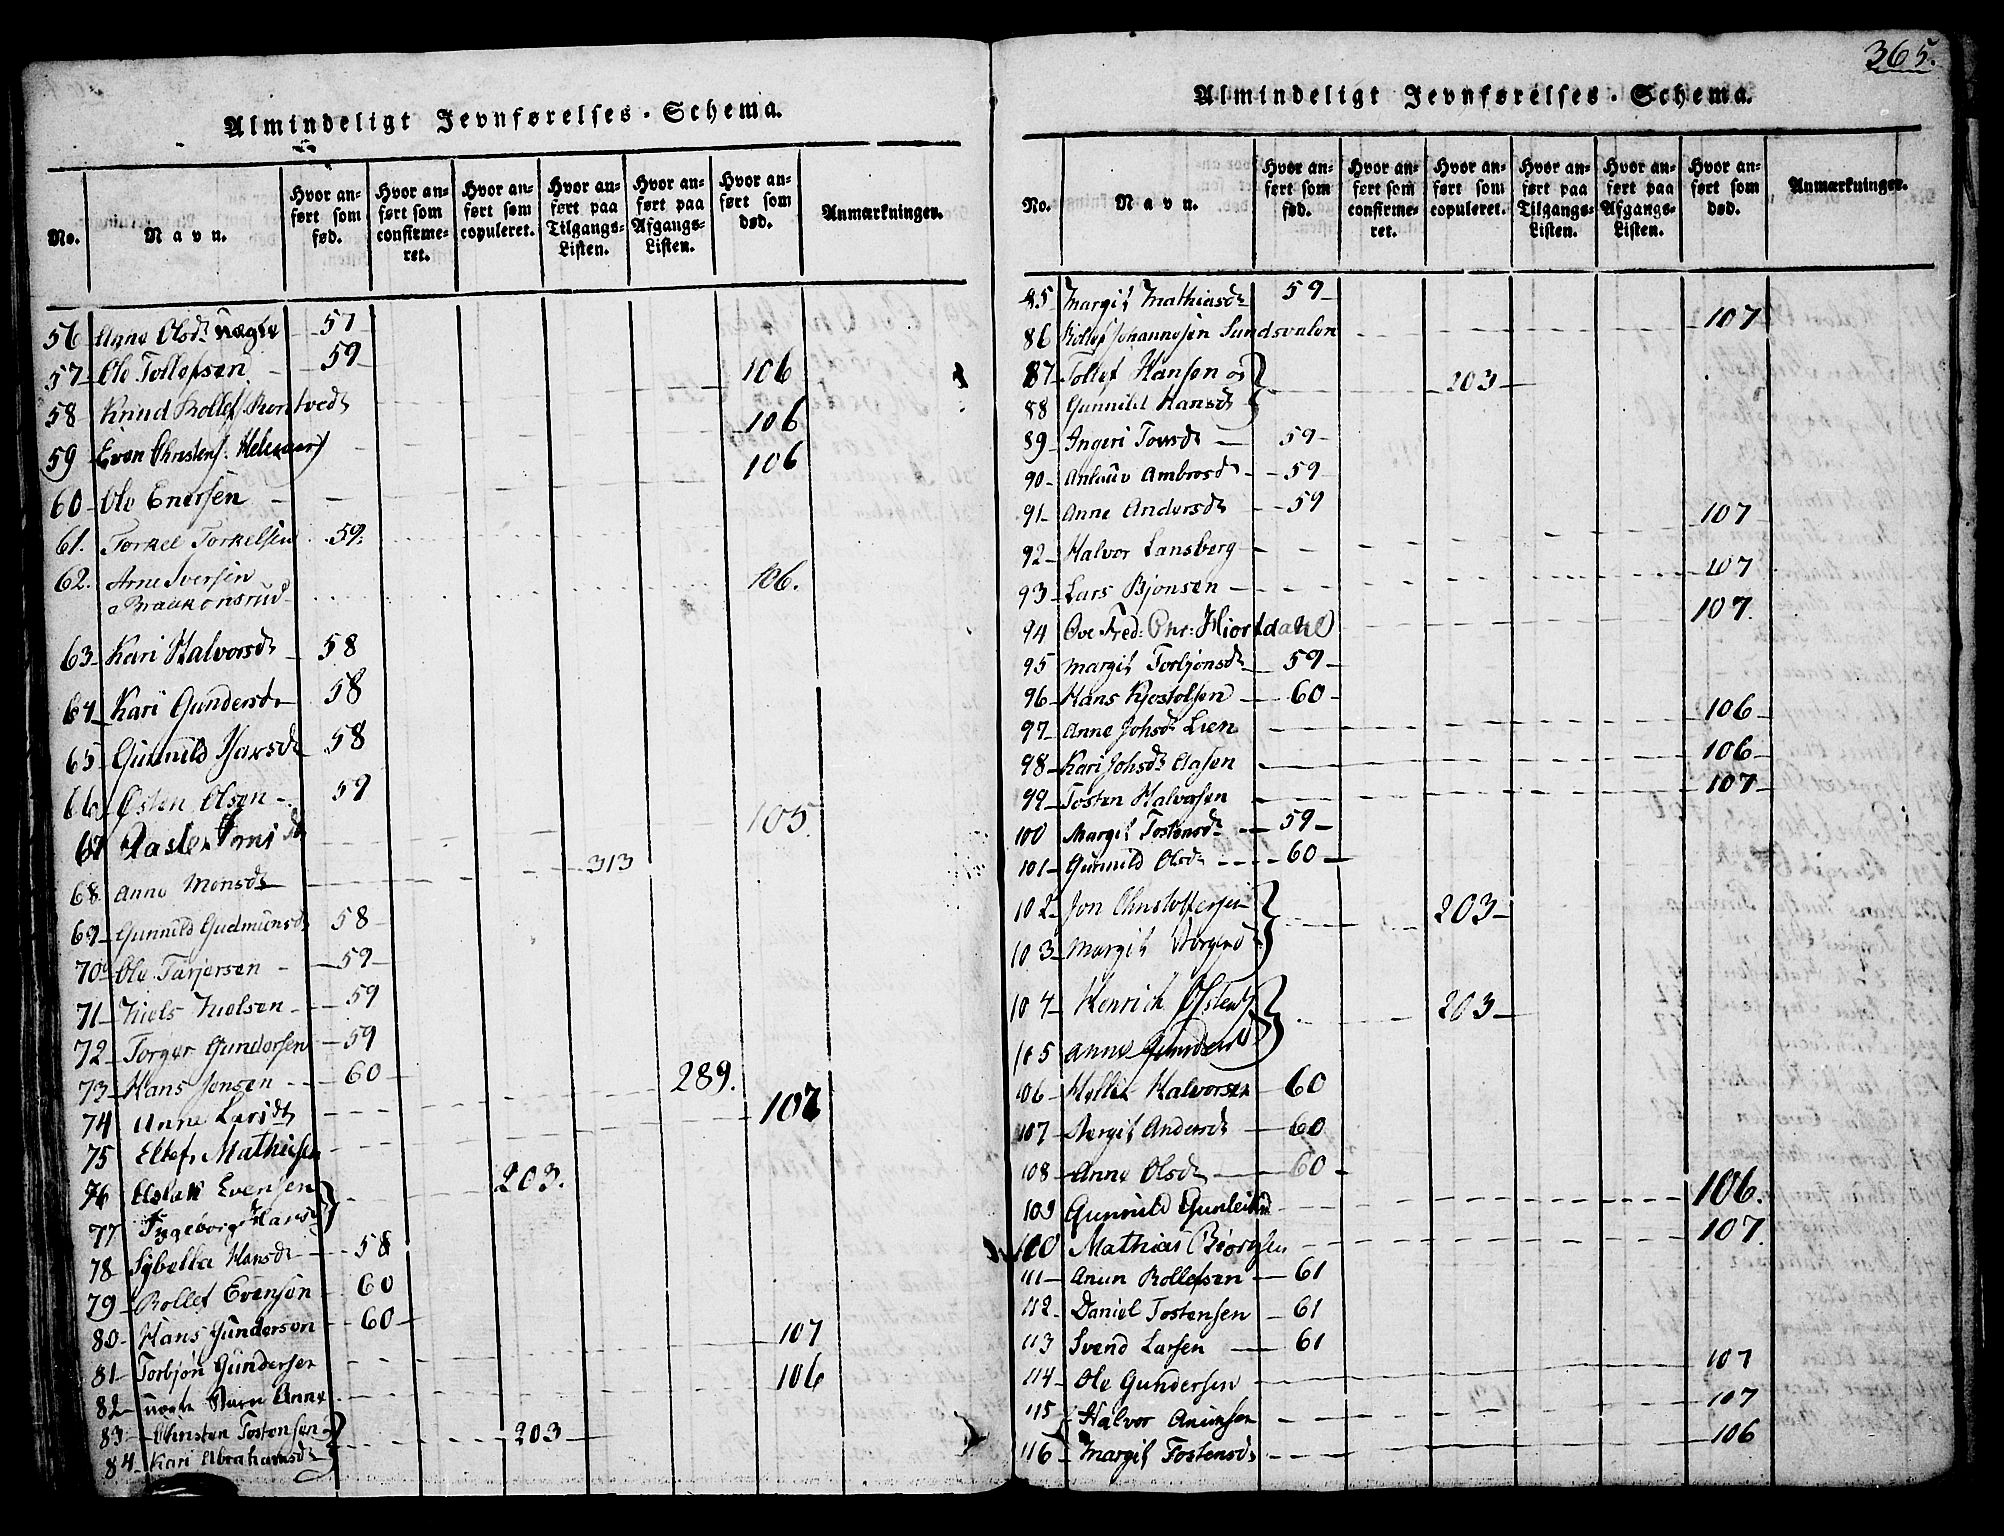 Almindeligt Jevnførelses-Schema.
No.
Navn.
Hvor anført som fød.
Hvor anført som confirmeret.
Hvor anført som copuleret.
Hvor anført paa Tilgangs-Listen.
Hvor anført paa Afgangs-Listen.
Hvor anført som død.
Anmærkninger.
56 Anne Olsdr uægte 57
57 Ole Tollefsen 59
58 Knud Rollefs Rontvedt 106
59 Even Christens. 106
60 Ole Enersen 106
61. Torkel Torkelsen 59.
62. Arne Iversen
a Braakonsrud 106.
63 Kari Halvorsdr 58
64 Kari Gundersdr 58
65 Gunnild 58
66 Østen Olsen 59
67 105
68 Anne Monsdr 313
69 Gunnild Gudmunsdr 58
70 Ole Tarjersen 59
71 Niels Nielsen 59
72 Torger Gundersen 59
73 Hans Jensen 60
74 Anne Larsdr 289.
75 Ellef Mathisen 107
76 Aslak Evensen
77 Ingeborg Hansdr 203.
78 Sybella Hansdr 58
79 Rollef Evensen 60
80 Hans Gundersen 60
81 Torbjøn Gundersen 107
82 uægte Barn Anne 106
83 Christen Tostensen
84 Kari Abrahamsdr 203
365.
Almindeligt Jevnførelses-Schema.
No.
Navn.
Hvor anført som fød.
Hvor anført som confirmeret.
Hvor anført som copuleret.
Hvor anført paa Tilgangs-Listen.
Hvor anført paa Afgangs-Listen.
Hvor anført som død.
Anmærkninger.
85 Margit Mathiasdr 59
86 Rollef Johannesen Sundsvalen 107
87 Tollef Hansen og
88 Gunnild Hansdr 203
89 Ingeri Tovsdr 59
90 Anlaug Ambrosdr 59
91 Anne Andersdr 59
92 Halvor Lansberg 107
93 Lars Bjonsen 107
94 Ove Fred: Chr: Hiortdahl 107.
95 Margit Torbjonsdr 59
96 Hans Kjostolsen 60
97 Anne Johsdr Lien 106
98 Kari Johsdr Aasen 106
99 Tosten Halvorsen 107
100 Margit Tostensdr 59
101 Gunnild Olsdr 60
102 Jon Christoffersen
103 Margit 203
104 Henrich
105 Anne 203
106 Halvorsen 60
107 Andersdr 60
108 Anne Olsdr 60
109 Gunnild 106.
110 Mathias Biørgsen 107.
111 Anun Rollefsen 61
112 Daniel Tostensen 61
113 Svend Larsen 61
114 Ole Gundersen 107
115 Halvor Anunsen 107
116 Margit Tostensdr 106